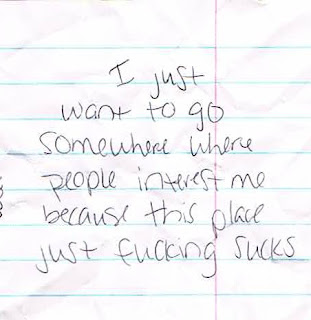 I just
want to go
somewhere where
people interest me
because this place
just fucking sucks